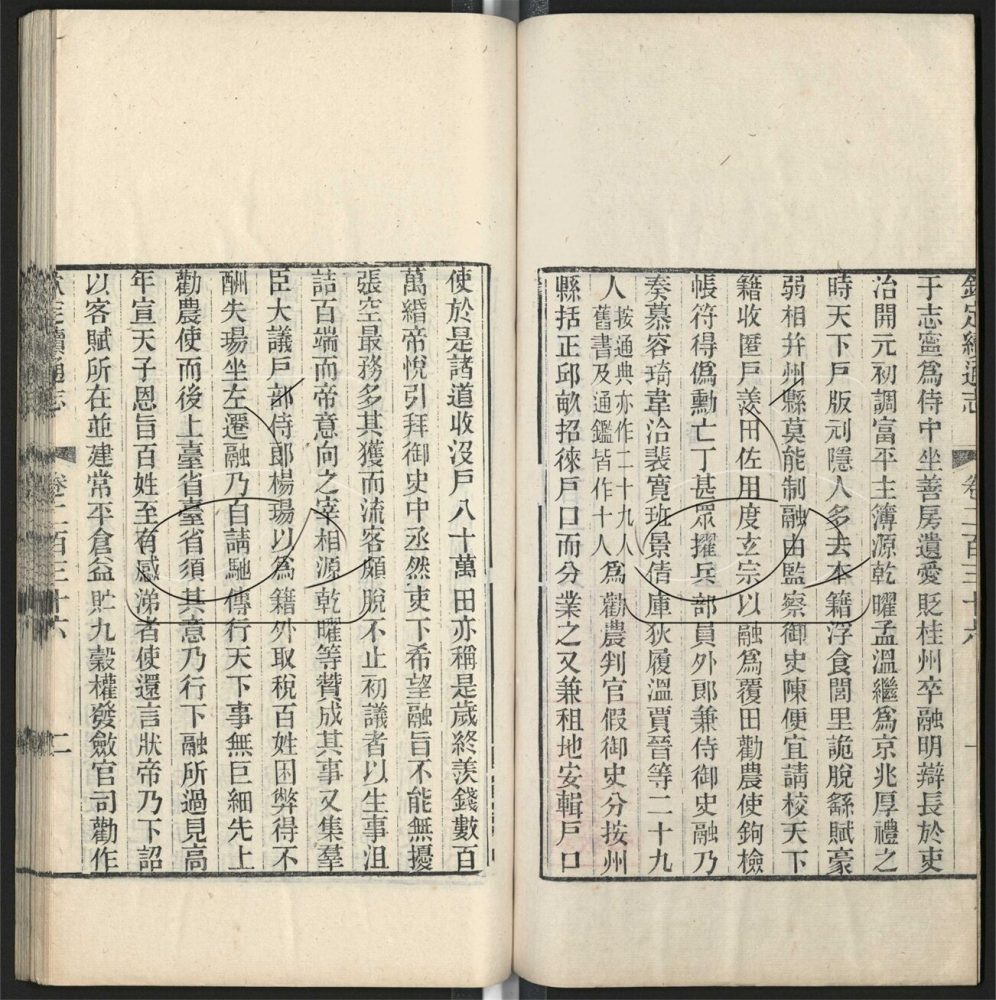 欽定續通志 卷二百三十六 一
于志寧爲侍中坐善房遺愛貶桂州卒融明辯長於吏
治開元初調富平主簿源乾曜孟溫繼爲京兆厚禮之
時天下戶版刓隱人多去本籍浮食閭里詭脫繇賦豪
弱相幷州縣莫能制融由監察御史陳便宜請校天下
籍收匿戶羨田佐用度玄宗以融爲覆田勸農使鉤檢
帳符得僞勳亡丁甚眾擢兵部員外郎兼侍御史融乃
奏慕容琦韋洽裴寬班景倩庫狄履溫賈晉等二十九
人按通典亦作二十九人舊書及通鑑皆作十人爲勸農判官假御史分按州
縣括正邱畝招徠戶口而分業之又兼租地安輯戶口
使於是諸道收沒戶八十萬田亦稱是歲終羨錢數百
萬緡帝悅引拜御史中丞然吏下希望融旨不能無擾
張空最務多其獲而流客頗脫不止初議者以生事沮
詰百端而帝意向之宰相源乾曜等贊成其事又集羣
臣大議戶部侍郎楊瑒以爲籍外取稅百姓困弊得不
酬失瑒坐左遷融乃自請馳傳行天下事無巨細先上
勸農使而後上臺省臺省須其意乃行下融所過見高
年宣天子恩旨百姓至有感涕者使還言狀帝乃下詔
以客賦所在並建常平倉益貯九穀權發斂官司勸作
欽定續通志 卷二百三十六 二